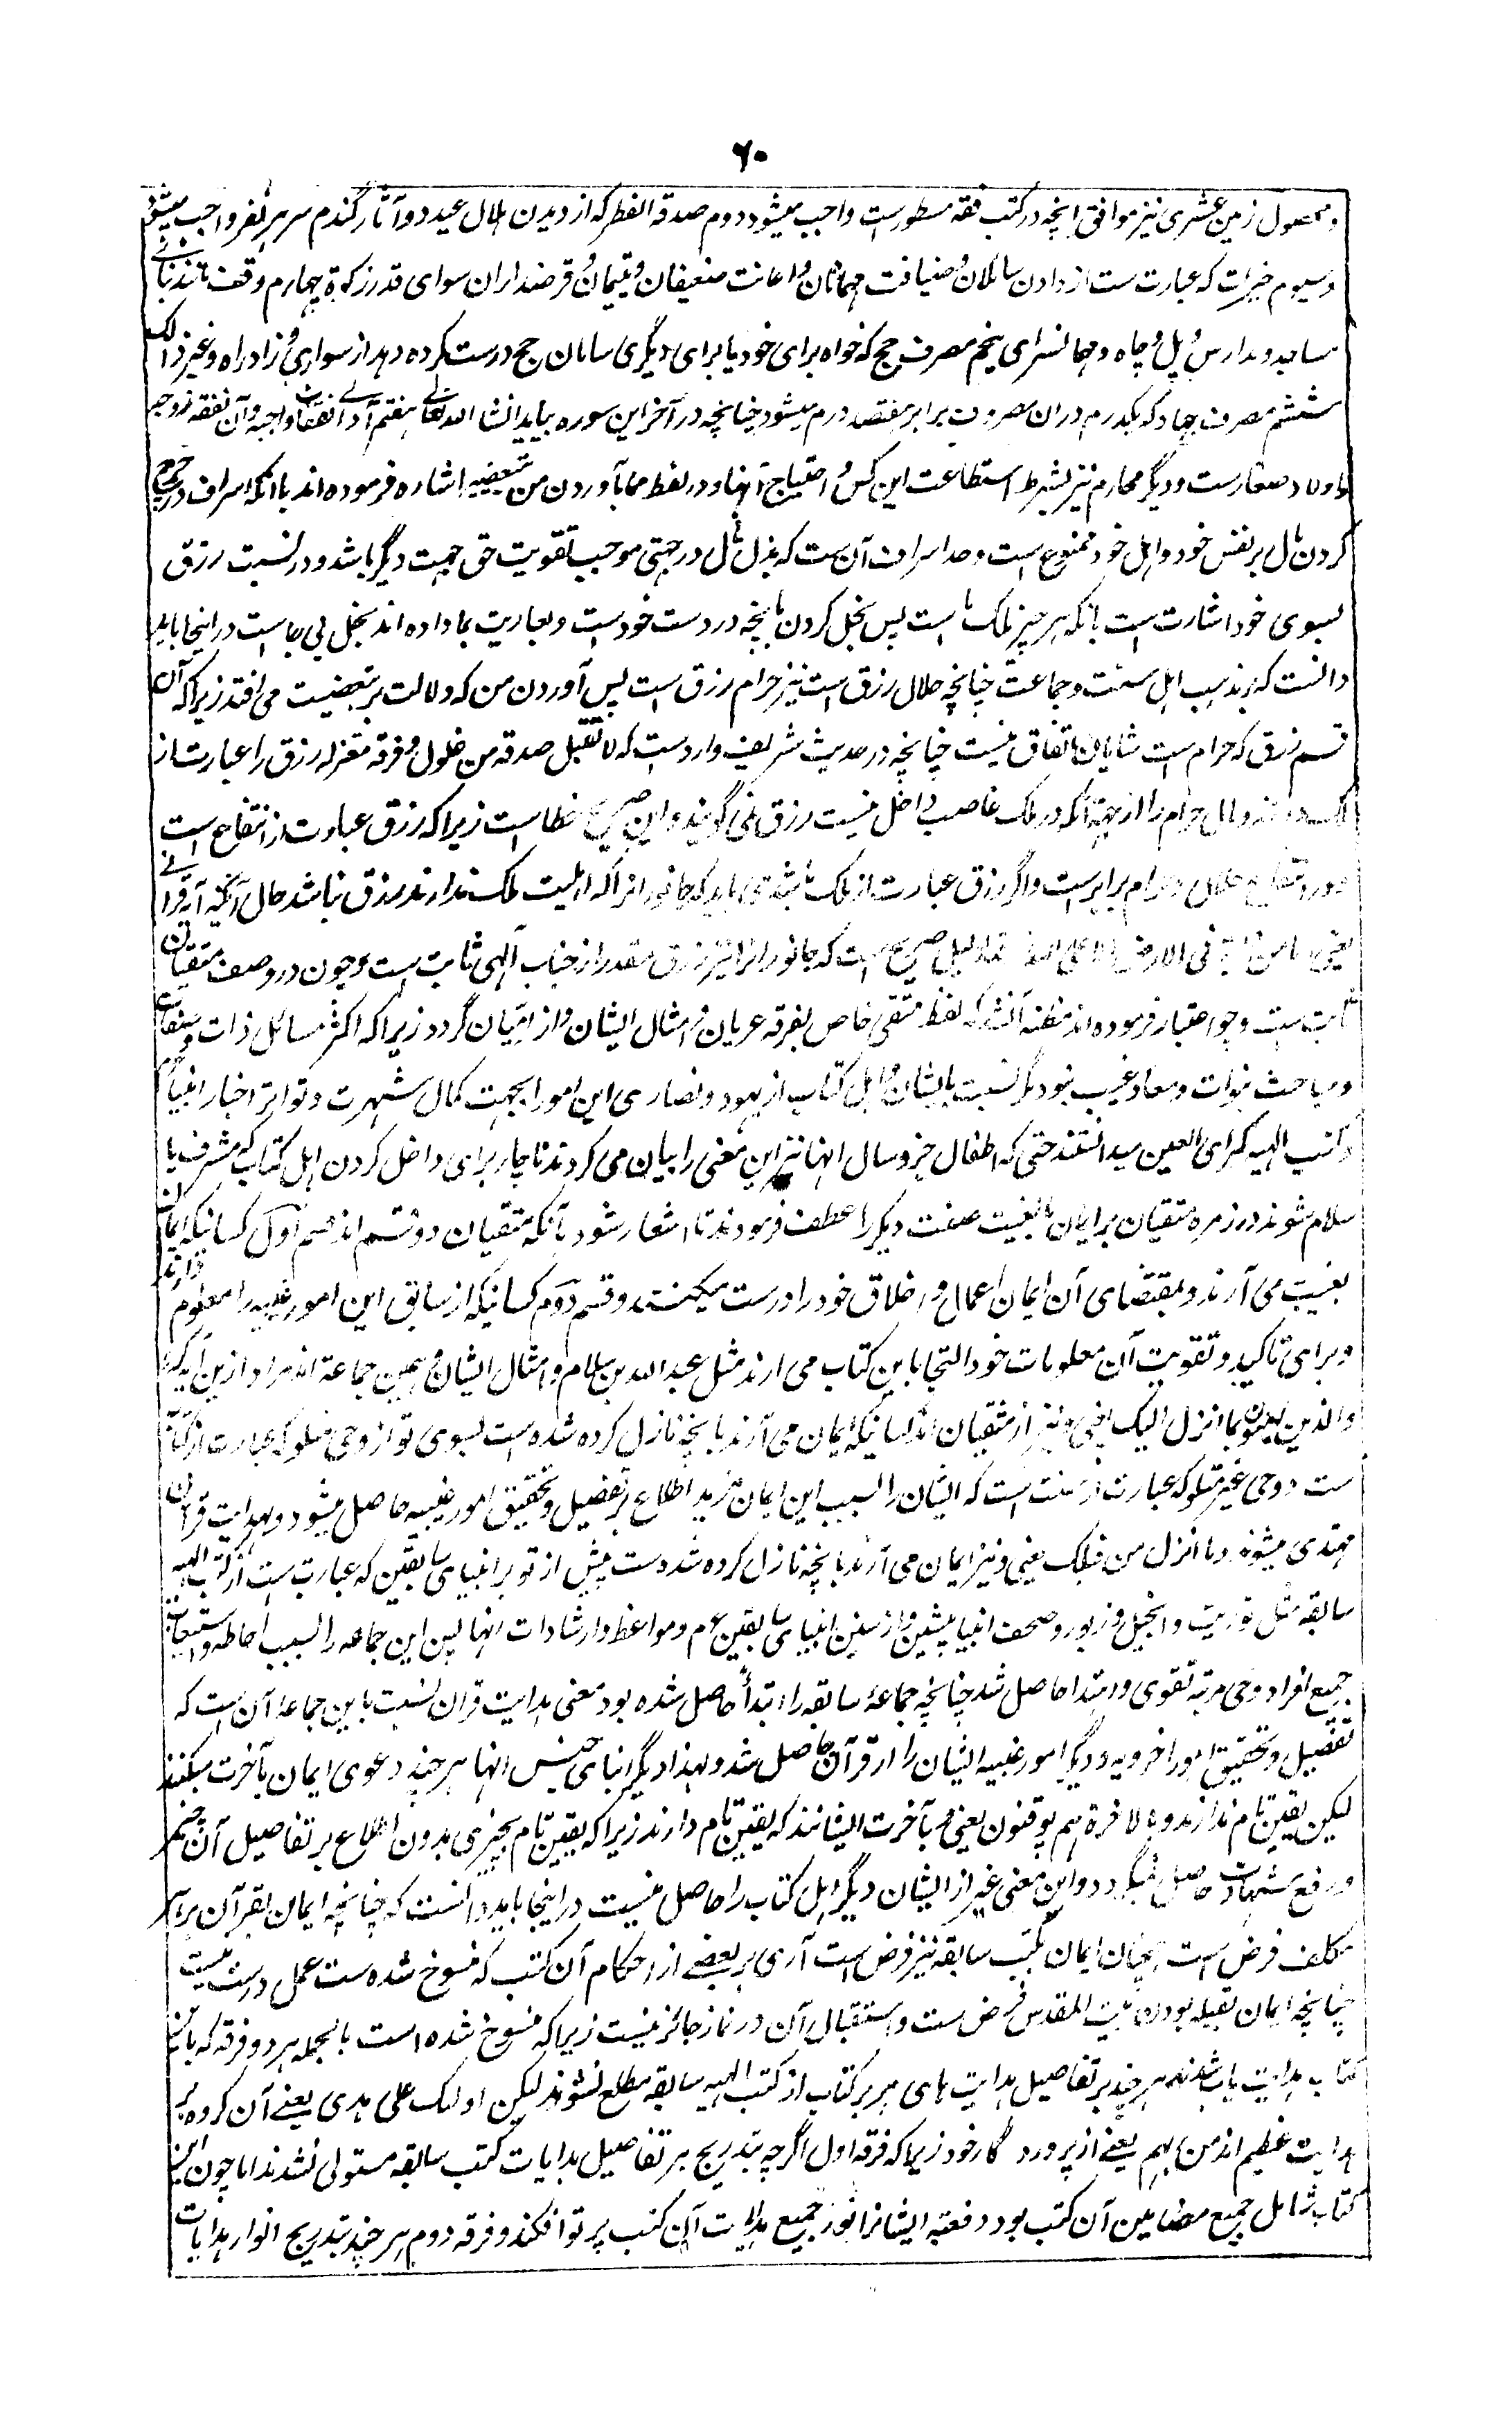 ۶۰
ومحصول زمین عشری نیز موافق انچه در کتب فقه مسطورست واجب میشود دوم صدقه الفطر که از دیدن هلال عید دو آثار گندم سر هر نفر واجب میشود
وسیوم خیرات که عبارت ست از دادن سائلان و ضیافت مهمانان و اعانت ضعیفان و یتیمان و قرضداران سوای قدر زکوة چهارم وقف مانند بنای
مساجد و مدارس و پل و چاه و مهمانسرای پنجم مصرف حج که خواه برای خود یا برای دیگری سامان حج درست کرده دهد از سواری و زاد راه و غیر ذالک
ششم مصرف جهاد که یکدرم دران مصروف برابر هفتصد درم میشود چنانچه در آخر این سوره بیاید انشا الله تعالی هفتم آدای نفقات واجبه و آن نفقه زوجه
و اولاد صغارست و دیگر محارم نیز بشرط استطاعت این کس و احتیاج آنها و در لفظ مما آوردن من تبعضیه اشاره فرموده اند باانکه اسراف در خرچ
کردن مال بر نفس خود و اهل خود ممنوع است و حد اسراف آن ست که بذل مال در جهتی موجب تقویت حق جهت دیگر باشد و در نسبت رزق
بسوی خود اشارت ست بانکه هر چیز ملک ما است پس بخل کردن بانچه در دست خودست و بعاریت بما داده اند بخل بی جاست در اینجا باید
دانست که بمذهب اهل سنت و جماعت چنانچه حلال رزق است نیز حرام رزق است پس آوردن من که دلالت بر تبعضیت می افتد زیراکه آن
قسم رزق که حرام ست شایان انفاق نیست چنانچه در حدیث شریف وارد ست که لا تقبل صدقه من غلول و فرقه معتزله رزق را عبارت از
ملک دانند و مال حرام را از جهة آنکه در ملک غاصب داخل نیست رزق نمی گویند و این صریح خطاست زیراکه رزق عبارت از انتفاع است
و در انتفاع حلال و حرام برابرست و اگر رزق عبارت از ملک باشد می باید که جانوران را که اهلیت ملک ندارند رزق نباشد حال آنکه آیه قرآنی
یعنی و ما من دابة فی الارض الا علی الله رزقها دلیل صریح ست که جانوران را نیز رزق مقدر از جناب آلهی ثابت ست و چون در وصف متقیان
ثابت ست وجو اعتبار فرموده اند مظنه آنشد که لفظ متقی خاص بفرقه عربان و امثال ایشان از امیان گردد زیراکه اکثر مسائل ذات و صفات
و مباحث نبوات و معاد غیب نبود مگر نسبت بایشان و اهل کتاب از یهود و نصاری این امور را بجهت کمال شهرت و تواتر اخبار انبیا
و کتب الهیه کرای العین میدانستند حتی که اطفال خورد سال انها نیز این معنی را بیان می کردند ناچار برای داخل کردن اهل کتاب که مشرف با
سلام شوند در زمره متقیان بر ایمان بالغیب صفت دیگر را عطف فرمودند تا اشعار شود بآنکه متقیان دو قسم اند قسم اول کسانیکه ایمان
بغیب می آرند و بمقتضای آن ایمان اعمال و اخلاق خود را درست میکنند و قسم دوم کسانیکه از سابق این امور غیبیه را معلوم دارند
و برای تاکید و تقویت آن معلومات خود التجا باین کتاب می ارند مثل عبد الله بن سلام و امثال ایشان و همین جماعة اند مراد ازین آیه که
والذین یومنون بما انزل الیک یعنی و نیز از متقیان اند کسانیکه ایمان می آرند بانچه نازل کرده شده است بسوی تو از وحی متلو که عبارت از کتاب
ست و وحی غیر متلو که عبارت از سنت است که ایشان را بسبب این ایمان مزید اطلاع بر تفصیل و تحقیق امور غیبیه حاصل میشود و بهدایت قرآن
مهتدی میشوند و ما انزل من قبلک یعنی و نیز ایمان می آرند بانچه نازل کرده شده ست پیش از تو بر انبیای سابقین که عبارت ست از کتب الهیه
سابقه مثل توریت و انجیل و زبور و صحف انبیا پیشین و از سنن انبیای سابقین عم و مواعظ و ارشادات انها پس این جماعه را بسبب احاطه و استیعاب
جمیع افراد وحی مرتبه تقوی در ابتدا حاصل شد چنانچه جماعهٔ سابقه را ابتدأ حاصل شده بود معنی هدایت قران نسبت باین جماعه آن است که
تفصیل و تحقیق امور اخرویه و دیگر امور غیبیه ایشان را از قرآن حاصل شد و لهذا دیگر ابنای جنس انها هر چند دعوی ایمان بآخرت میکنند
لیکن یقین تام ندارند و بالاخرة هم یوقنون یعنی و بآخرت ایشانند که یقین تام دارند زیراکه یقین تام بچیزی بدون اطلاع بر تفاصیل آن چیز
و رفع شبهات حاصل نمیگردد و این معنی غیر از ایشان دیگر اهل کتاب را حاصل نیست در اینجا باید دانست که چنانچه ایمان بقرآن بر هر
مکلف فرض است همچنان ایمان بکتب سابقه نیز فرض ست آری بر بعضے از احکام آن کتب که منسوخ شده ست عمل درست نیست
چنانچه ایمان بقبله بودن بیت المقدس فرض ست و استقبال آن در نماز جائز نیست زیراکه منسوخ شده است بالجمله هر دو فرقه که باین
کتاب هدایت یاب شدند هر چند بر تفاصیل هدایت های هر هر کتاب از کتب الهیه سابقه مطلع نشوند لیکن اولئک علی هدی یعنے آن گروه بر
هدایت عظیم اند من ربهم یعنے از پروردگار خود زیراکه فرقه اول اگرچه بتدریج بر تفاصیل هدایات کتب سابقه مستولی نشدند اما چون این
کتاب شامل جمیع مضامین آن کتب بود دفعة ایشانرا نور جمیع هدایت آن کتب پرتو افکند و فرقه دوم هر چند بتدریج انوار هدایات